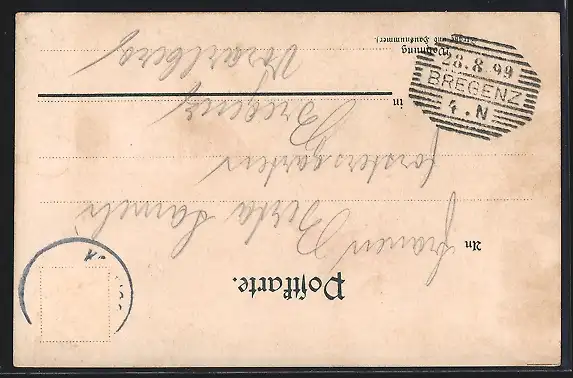 Postkarte.
An
Frauen Berta
Forstersgarten
in Bregenz
Vorarlberg
Wohnung
(Straße und Hausnummer).
28.8.99
BREGENZ
4.N